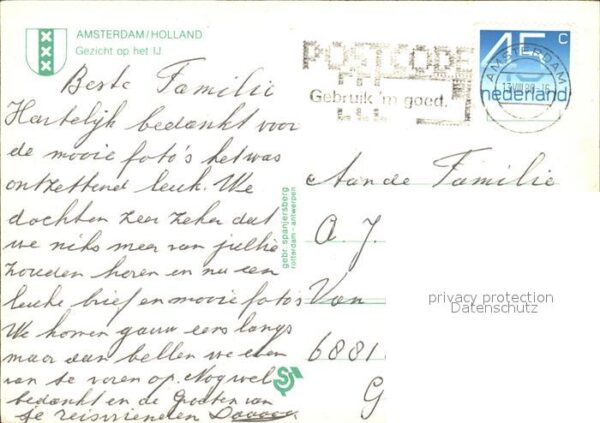 AMSTERDAM/HOLLAND
Gezicht op het IJ
Beste Familie
Hartelijk bedankt voor
de mooie foto's het was
ontzettend leuk. We
dochten zeer zeker dat
we niks meer van jullie
zouden horen en nu een
leuke brief en mooie foto's
We komen gauw eens langs
maar dan bellen we even
van te voren op. Nog wel
bedankt en de Groeten van
je reisvrienden
gebr. spanjersberg
rotterdam - antwerpen
POSTCODE
Gebruik 'm goed.
45 c
nederland
AMSTERDAM
Aan de Familie
A J.
Van
6881
G
privacy protection
Datenschutz